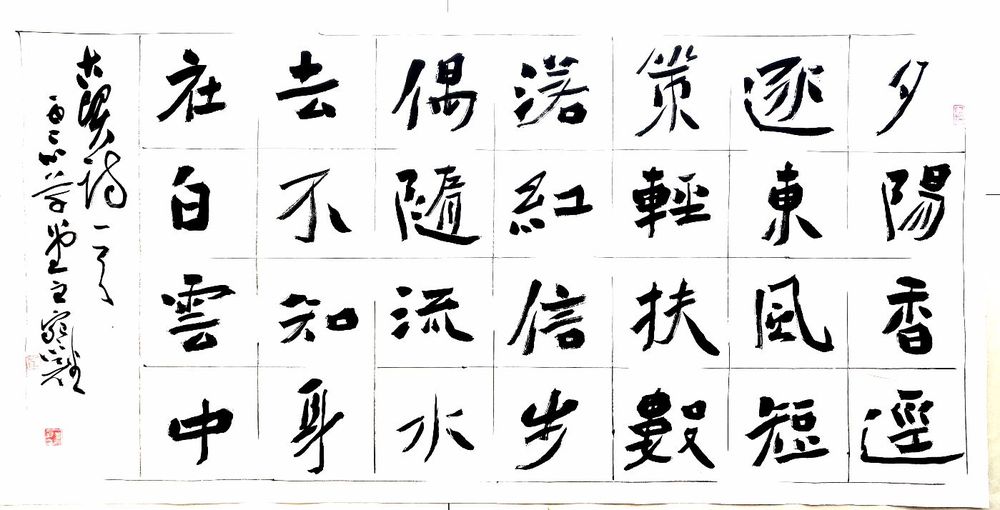 夕陽香逕
逐東風短
策輕扶數
落紅信步
偶隨流水
去不知身
在白雲中
古賢詩一首